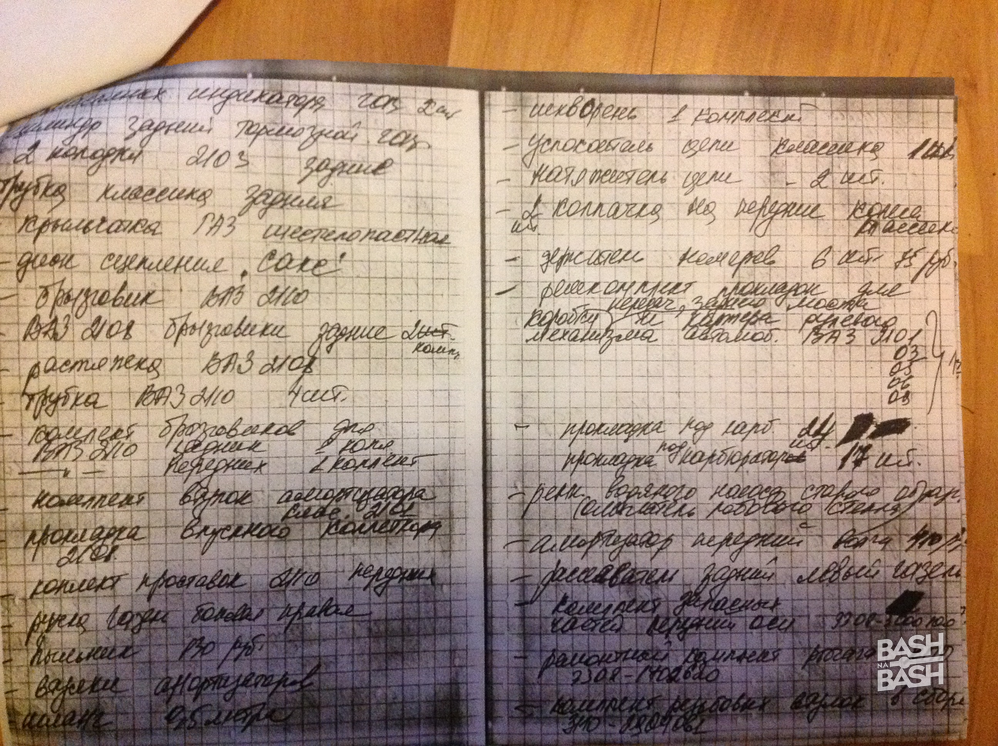 индикатора газ 2 шт
цилиндр задний тормозной газ
2 колодки 2103 задние
трубка классика задняя
- крыльчатка ГАЗ шестилопастная
- диск сцепления "Сакс"
- брызговик ВАЗ 2110
- ВАЗ 2108 брызговики задние 2
компл
- растяпека ВАЗ 2108
- трубка ВАЗ 2110 4 шт.
- комплект брызговиков для
ВАЗ 2110 задних 1 компл
—"— передних 1 комплект
- комплект втулок амортизатора
2101
прокладка впускного коллектора
2108
- коплект проставок 2110 передних
- ручка газель боковая правая
- пыльник 130 руб
- втулки амортизаторов
- шланг 9,5 метра
- шкворень 1 комплект
- успокоитель цепи классика 1 шт
- натяжитель цепи - 2 шт.
- 2 колпачка на передние колеса
шт классика
- держатели номеров 6 шт 75 руб
- ремкомплект прокладок для
коробки передач, заднего моста
и картера рулевого
механизма автомоб. ВАЗ 2101
03
05
06
08
- прокладка под карб
прокладка под карбюратор 17 шт.
- рем. водяного насоса старого образ
- амортизатор передний Волга
- рассеиватель задний левый газель
- комплект запасных
частей верхний оси
- ремонтный комплект рычага
2308-1702620
- комплект резьбовых втулок в сборе
3110-2904062
BASH
НА
BASH